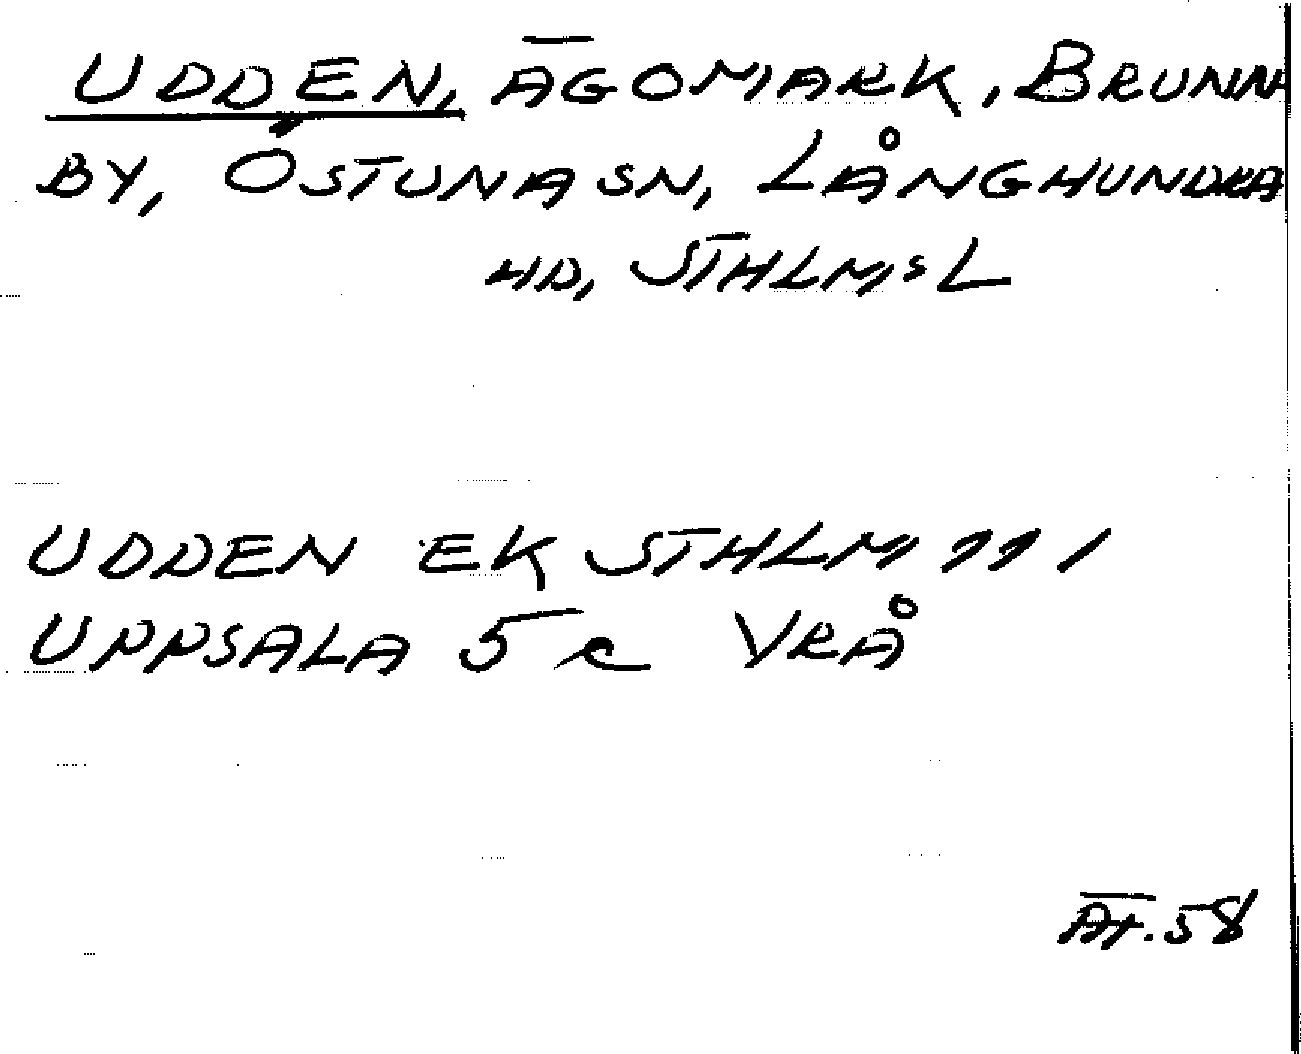 UDDEN, ÄGOMARK, BRUNNA
BY, ÖSTUNA SN, LÅNGHUNDRA
HD, STHLMS L
UDDEN EK STHLM 111 1
UPPSALA 5 c VRÅ
ÄT. 58